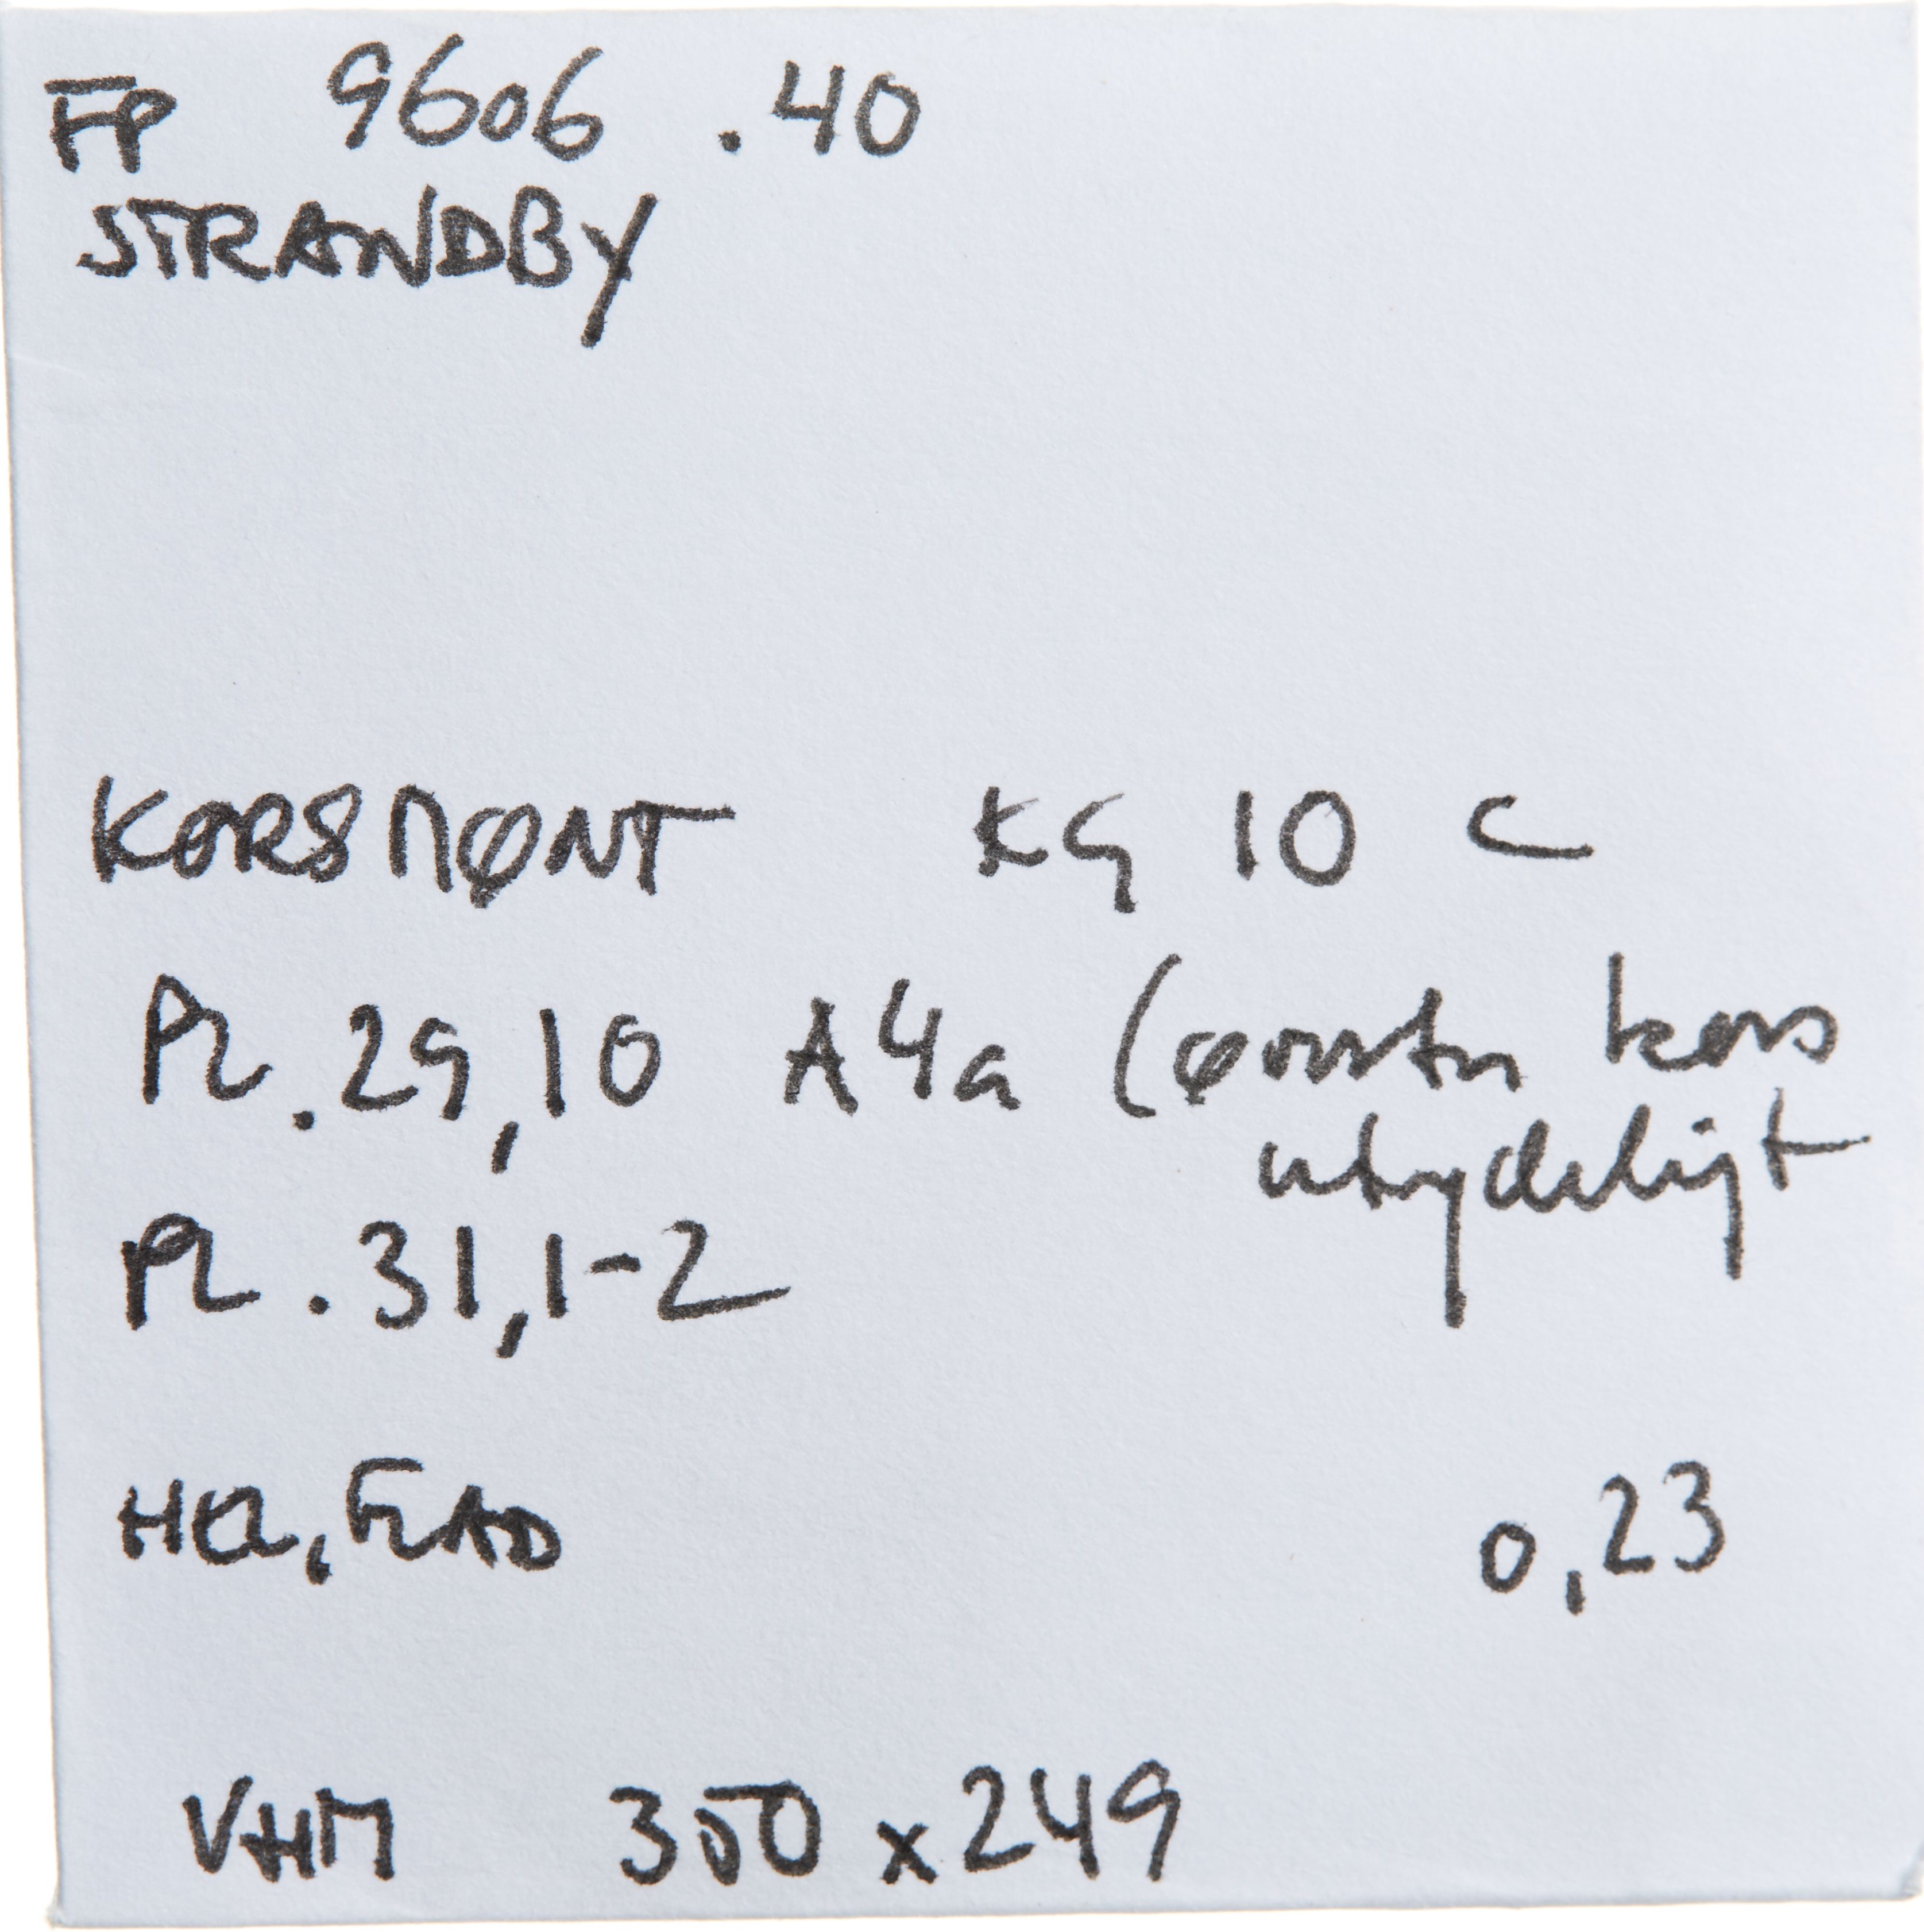 FP 9606 .40
STRANDBY
KORSMØNT KG 10 C
PL. 29,10 A4a (øverste kors
utydeligt
PL. 31,1-2
HEL, FLAD 0,23
VHM 350 x 249